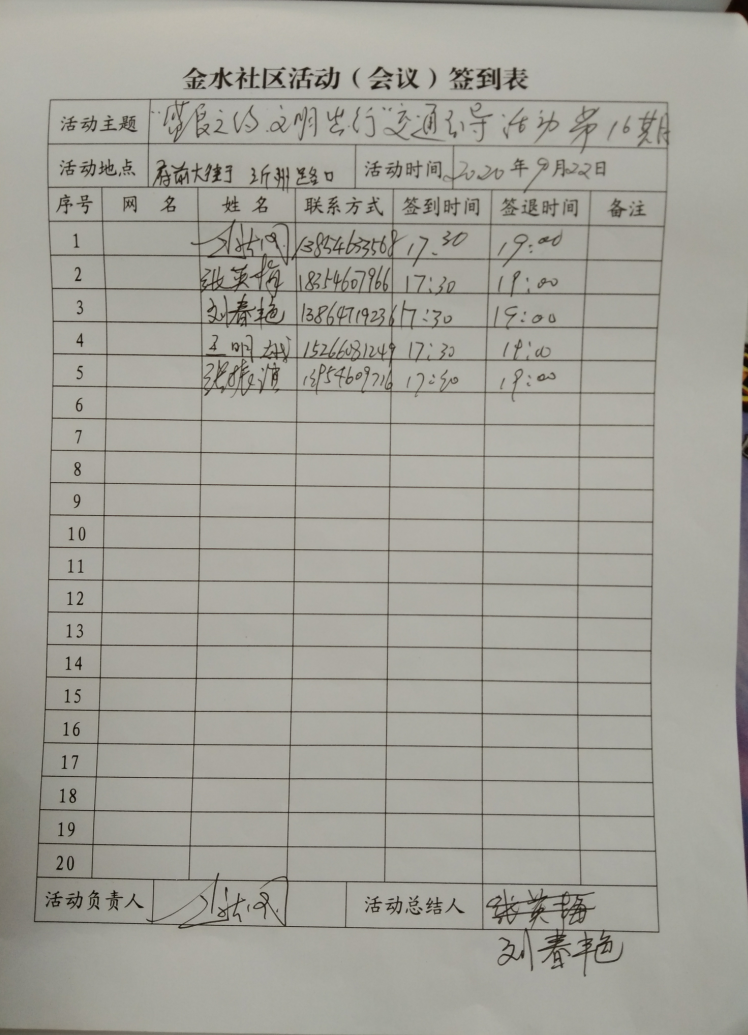 金水社区活动（会议）签到表
活动主题 文明出行"交通引导活动第16期
活动地点 府前大街于沂州路口 活动时间 2020年9月22日
序号 网 名 姓 名 联系方式 签到时间 签退时间 备注
1 13854633568 17:30 19:00
2 张英梅 18354607966 17:30 19:00
3 刘春艳 13864719236 17:30 19:00
4 王明 15266081249 17:30 19:00
5 张振滨 13954609716 17:30 19:00
6
7
8
9
10
11
12
13
14
15
16
17
18
19
20
活动负责人 活动总结人 张英梅
刘春艳